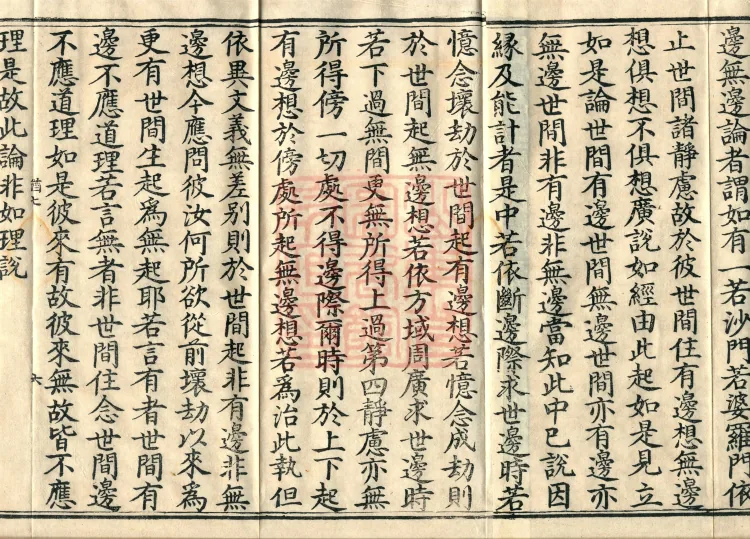 邊無邊論者謂如有一若沙門若婆羅門依
止世間諸靜慮故於彼世間住有邊想無邊
想俱想不俱想廣說如經由此起如是見立
如是論世間有邊世間無邊世間亦有邊亦
無邊世間非有邊非無邊當知此中已說因
緣及能計者是中若依斷邊際求世邊時若
憶念壞劫於世間起有邊想若憶念成劫則
於世間起無邊想若依方域周廣求世邊時
若下過無間更無所得上過第四靜慮亦無
所得傍一切處不得邊際爾時則於上下起
有邊想於傍處所起無邊想若為治此執但
依異文義無差別則於世間起非有邊非無
邊想今應問彼汝何所欲從前壞劫以來為
更有世間生起為無起耶若言有者世間有
邊不應道理若言無者非世間住念世間邊
不應道理如是彼來有故彼來無故皆不應
理是故此論非如理說
六